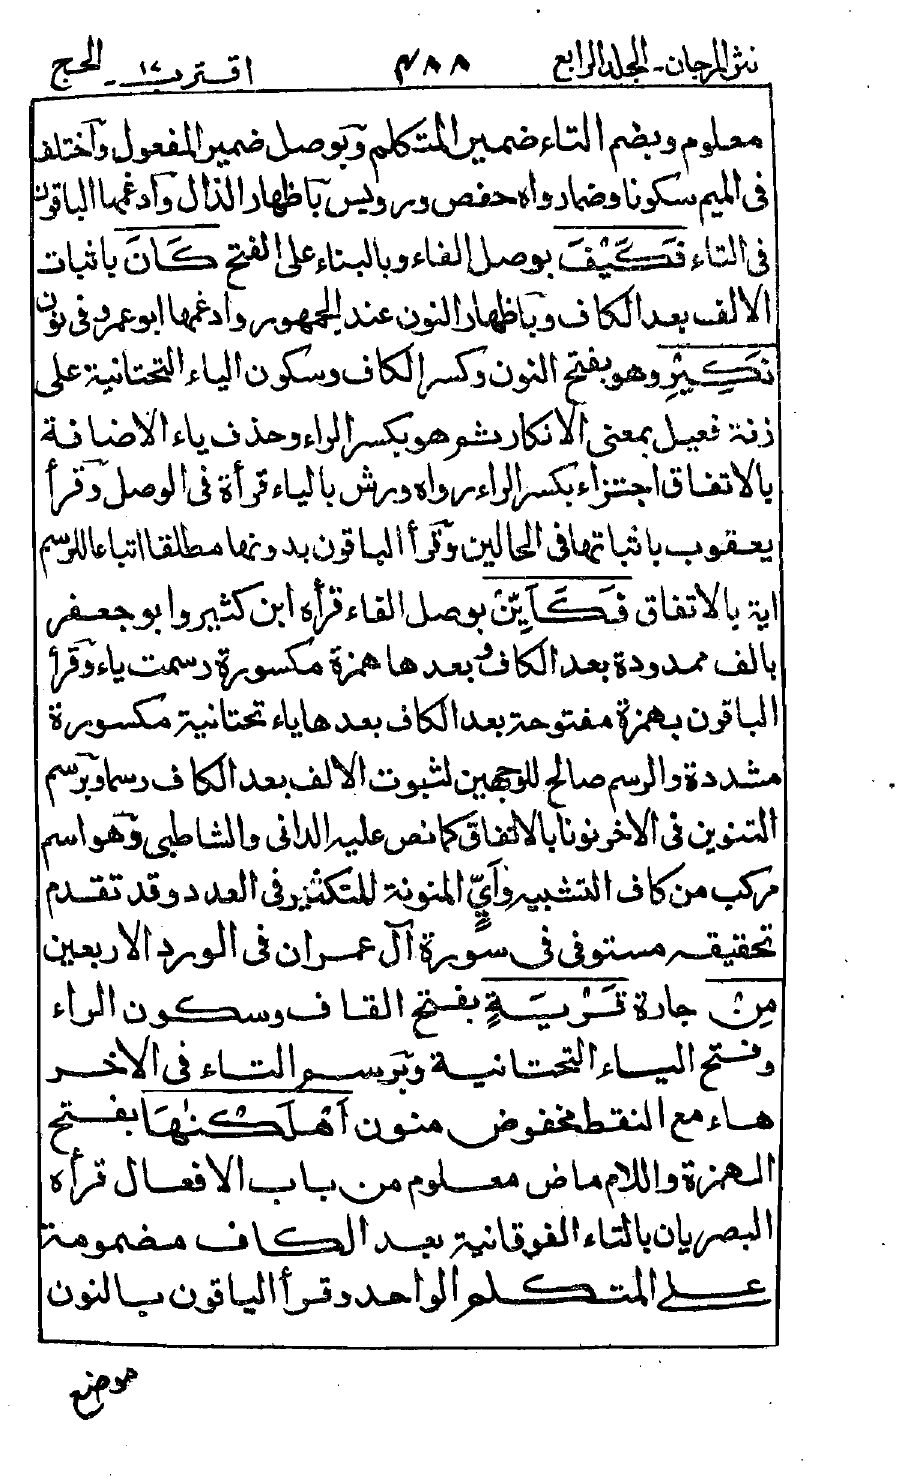 نثر المرجان ـ المجلد الرابع ٤٨٨ اقترب ١٧ ـ الحج
معلوم وبضم التاء ضمير المتكلم وبوصل ضمير المفعول واختلف
فى الميم سكونا وضما رواه حفص ورويس باظهار الذال وادغمها الباقون
فى التاء فَكَيْفَ بوصل الفاء وبالبناء على الفتح كَانَ باثبات
الالف بعد الكاف وباظهار النون عند الجمهور وادغمها ابو عمرو فى نون
نَكِيْرِ وهو بفتح النون وكسر الكاف وسكون الياء التحتانية على
زنة فعيل بمعنى الانكار ثم هو بكسر الراء وحذف ياء الاضافة
بالاتفاق اجتزاء بكسر الراء رواه ورش بالياء قرأة فى الوصل وقرأ
يعقوب باثباتها فى الحالين وقرأ الباقون بدونها مطلقا اتباعا للرسم
اية بالاتفاق فَكَاَيِّنْ بوصل الفاء قرأه ابن كثير وابو جعفر
بالف ممدودة بعد الكاف وبعدها همزة مكسورة رسمت ياء وقرأ
الباقون بهمزة مفتوحة بعد الكاف بعدها ياء تحتانية مكسورة
مشددة والرسم صالح للوجهين لثبوت الالف بعد الكاف رسما وبرسم
التنوين فى الاخر نونا بالاتفاق كما نص عليه الدانى والشاطبى وهو اسم
مركب من كاف التشبيه وأيٍّ المنونة للتكثير فى العدد وقد تقدم
تحقيقه مستوفى فى سورة آل عمران فى الورد الاربعين
مِنْ جارة قَرْيَةٍ بفتح القاف وسكون الراء
وفتح الياء التحتانية وبرسم التاء فى الاخر
هاء مع النقط مخفوض منون اَهْلَكْنٰهَا بفتح
الهمزة واللام ماض معلوم من باب الافعال قرأه
البصريان بالتاء الفوقانية بعد الكاف مضمومة
على المتكلم الواحد وقرأ الباقون بالنون
موضع